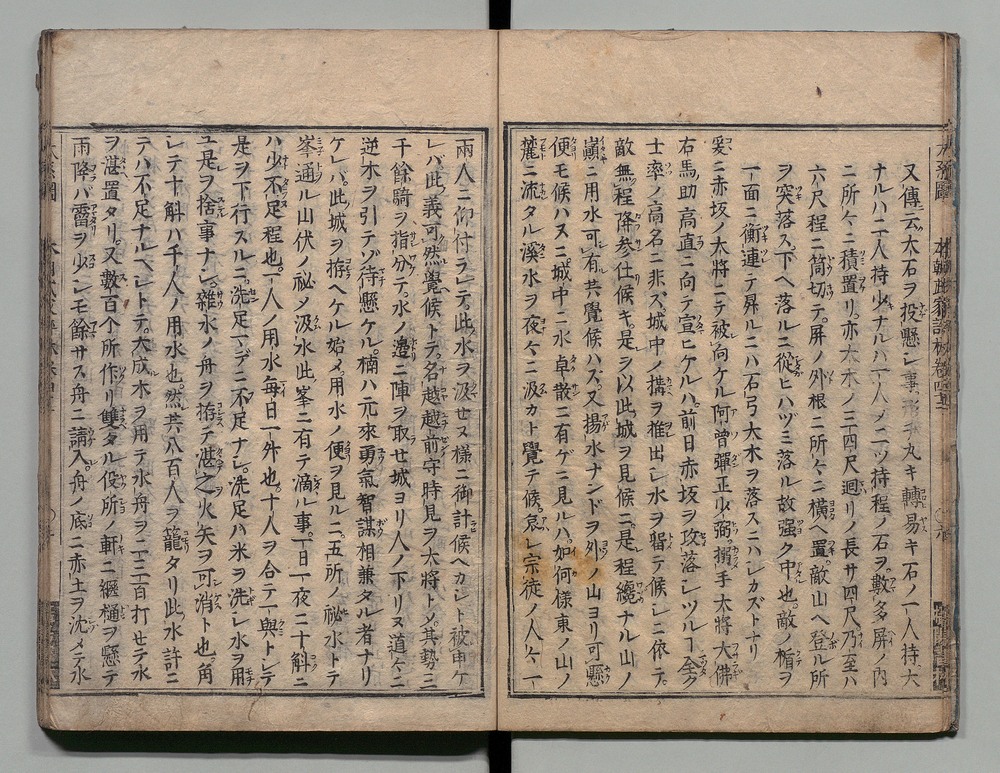 又傳云大石ヲ投懸シ事形チ丸キ轉易キ石ノ一人持、大
ナルハ二人持少ナルハ一人メ二ツ持程ノ石ヲ數多屏ノ内
ニ所々ニ積置リ亦大木ノ三四尺廻リノ長サ四尺乃至ハ
六尺程ニ筒切テ屏ノ外根ニ所々ニ横ヘ置敵山ヘ登ル所
ヲ突落ス下ヘ落ルニ從ヒハヅミ落ル故强ク中也敵ノ楯ヲ
一面ニ衝連テ昇ルニハ石弓大木ヲ落スニハシカズトナリ
爰ニ赤坂ノ大將ニテ被向ケル阿曾彈正少弼搦手大將大佛
右馬助高直ニ向テ宣ヒケルハ前日赤坂ヲ攻落シツルヿ全ク
士率ノ高名ニ非ズ城中ノ搆ヲ推出シ水ヲ留テ候シニ依テ
敵無程降参仕候キ是ヲ以此城ヲ見候ニ是程纔ナル山ノ
巓ニ用水可有共覺候ハズ又揚水ナンドヲ外ノ山ヨリ可懸
便モ候ハヌニ城中ニ水卓散ニ有ゲニ見ルハ如何樣東ノ山ノ
麓ニ流タル溪水ヲ夜々ニ汲カト覺テ候哀レ宗徒ノ人々一
兩人ニ仰付ラレテ此水ヲ汲セヌ樣ニ御計候ヘカシト被申ケ
レバ此義可然覺候トテ名越越前守時見ヲ大將トメ其勢三
千餘騎ヲ指分テ水ノ邊ニ陣ヲ取セ城ヨリ人ノ下リヌ道々ニ
逆木ヲ引テゾ待懸ケル楠ハ元來勇氣智謀相兼タル者ナリ
ケレバ此城ヲ拵ヘケル始メ用水ノ便ヲ見ルニ五所ノ祕水トテ
峯通ル山伏ノ祕ノ汲水此峯ニ有テ滴ル事一日一夜ニ十斛ニ
ハ少不足程也一人ノ用水毎日一外也十人ヲ合テ一與トレテ
是ヲ下行スルニ洗足マデニ不足ナシ洗足ハ米ヲ洗シ水ヲ用
ユ是ヲ捨事ナシ雜水ノ舟ヲ拵テ湛之火矢ヲ可消ト也角
レテ十斛ハ千人ノ用水也然共八百人ヲ籠タリ此水許ニ
テハ不足ナルベシトテ大成木ヲ用テ水舟ヲ二三百打セテ水
ヲ湛置タリ又數百个所作リ雙タル役所ノ軒ニ繼樋ヲ懸テ
雨降バ霤ヲ少シモ餘サス舟ニ請入舟ノ底ニ赤土ヲ沈メテ水